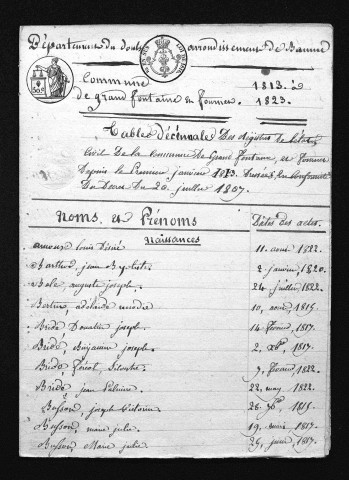 Département du doubs arrondissement de Baume
Commune 1813 à
de grand fontaine et fournets. 1823.
Tables Décennales Des Registres de l'état
Civil De la Commune De Grand fontaine, et fournets
Depuis le Premier janvier 1813 Dressées En Conformité
Du Decret Du 20. juillet 1807.
Noms et Prénoms Dates des actes.
naissances
arnoux Louis Désiré 11. aout 1822.
Barthod, jean Baptiste 2 janvier, 1820.
Bole, auguste joseph. 24. juillet, 1822.
10, 1815.
Bride Donatien joseph. 14. fevrier, 1817.
Bridé, Benjamine joseph. 2. 1817.
Bride, 7, fevrier, 1822.
Bridé, jean 22, may, 1822.
Busson, joseph Victorin 26. 1815.
Busson, marie julie. 19. 1817.
Busson, Marie julie 29, juin, 1817.